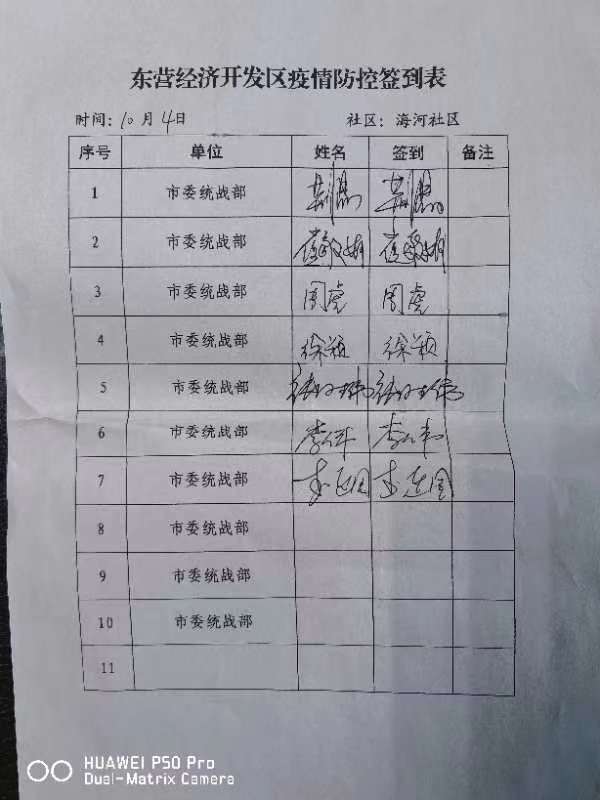 东营经济开发区疫情防控签到表
时间：10月4日 社区：海河社区
序号 单位 姓名 签到 备注
1 市委统战部
2 市委统战部
3 市委统战部 周虎 周虎
4 市委统战部 徐颖 徐颖
5 市委统战部
6 市委统战部
7 市委统战部
8 市委统战部
9 市委统战部
10 市委统战部
11
HUAWEI P50 Pro
Dual-Matrix Camera